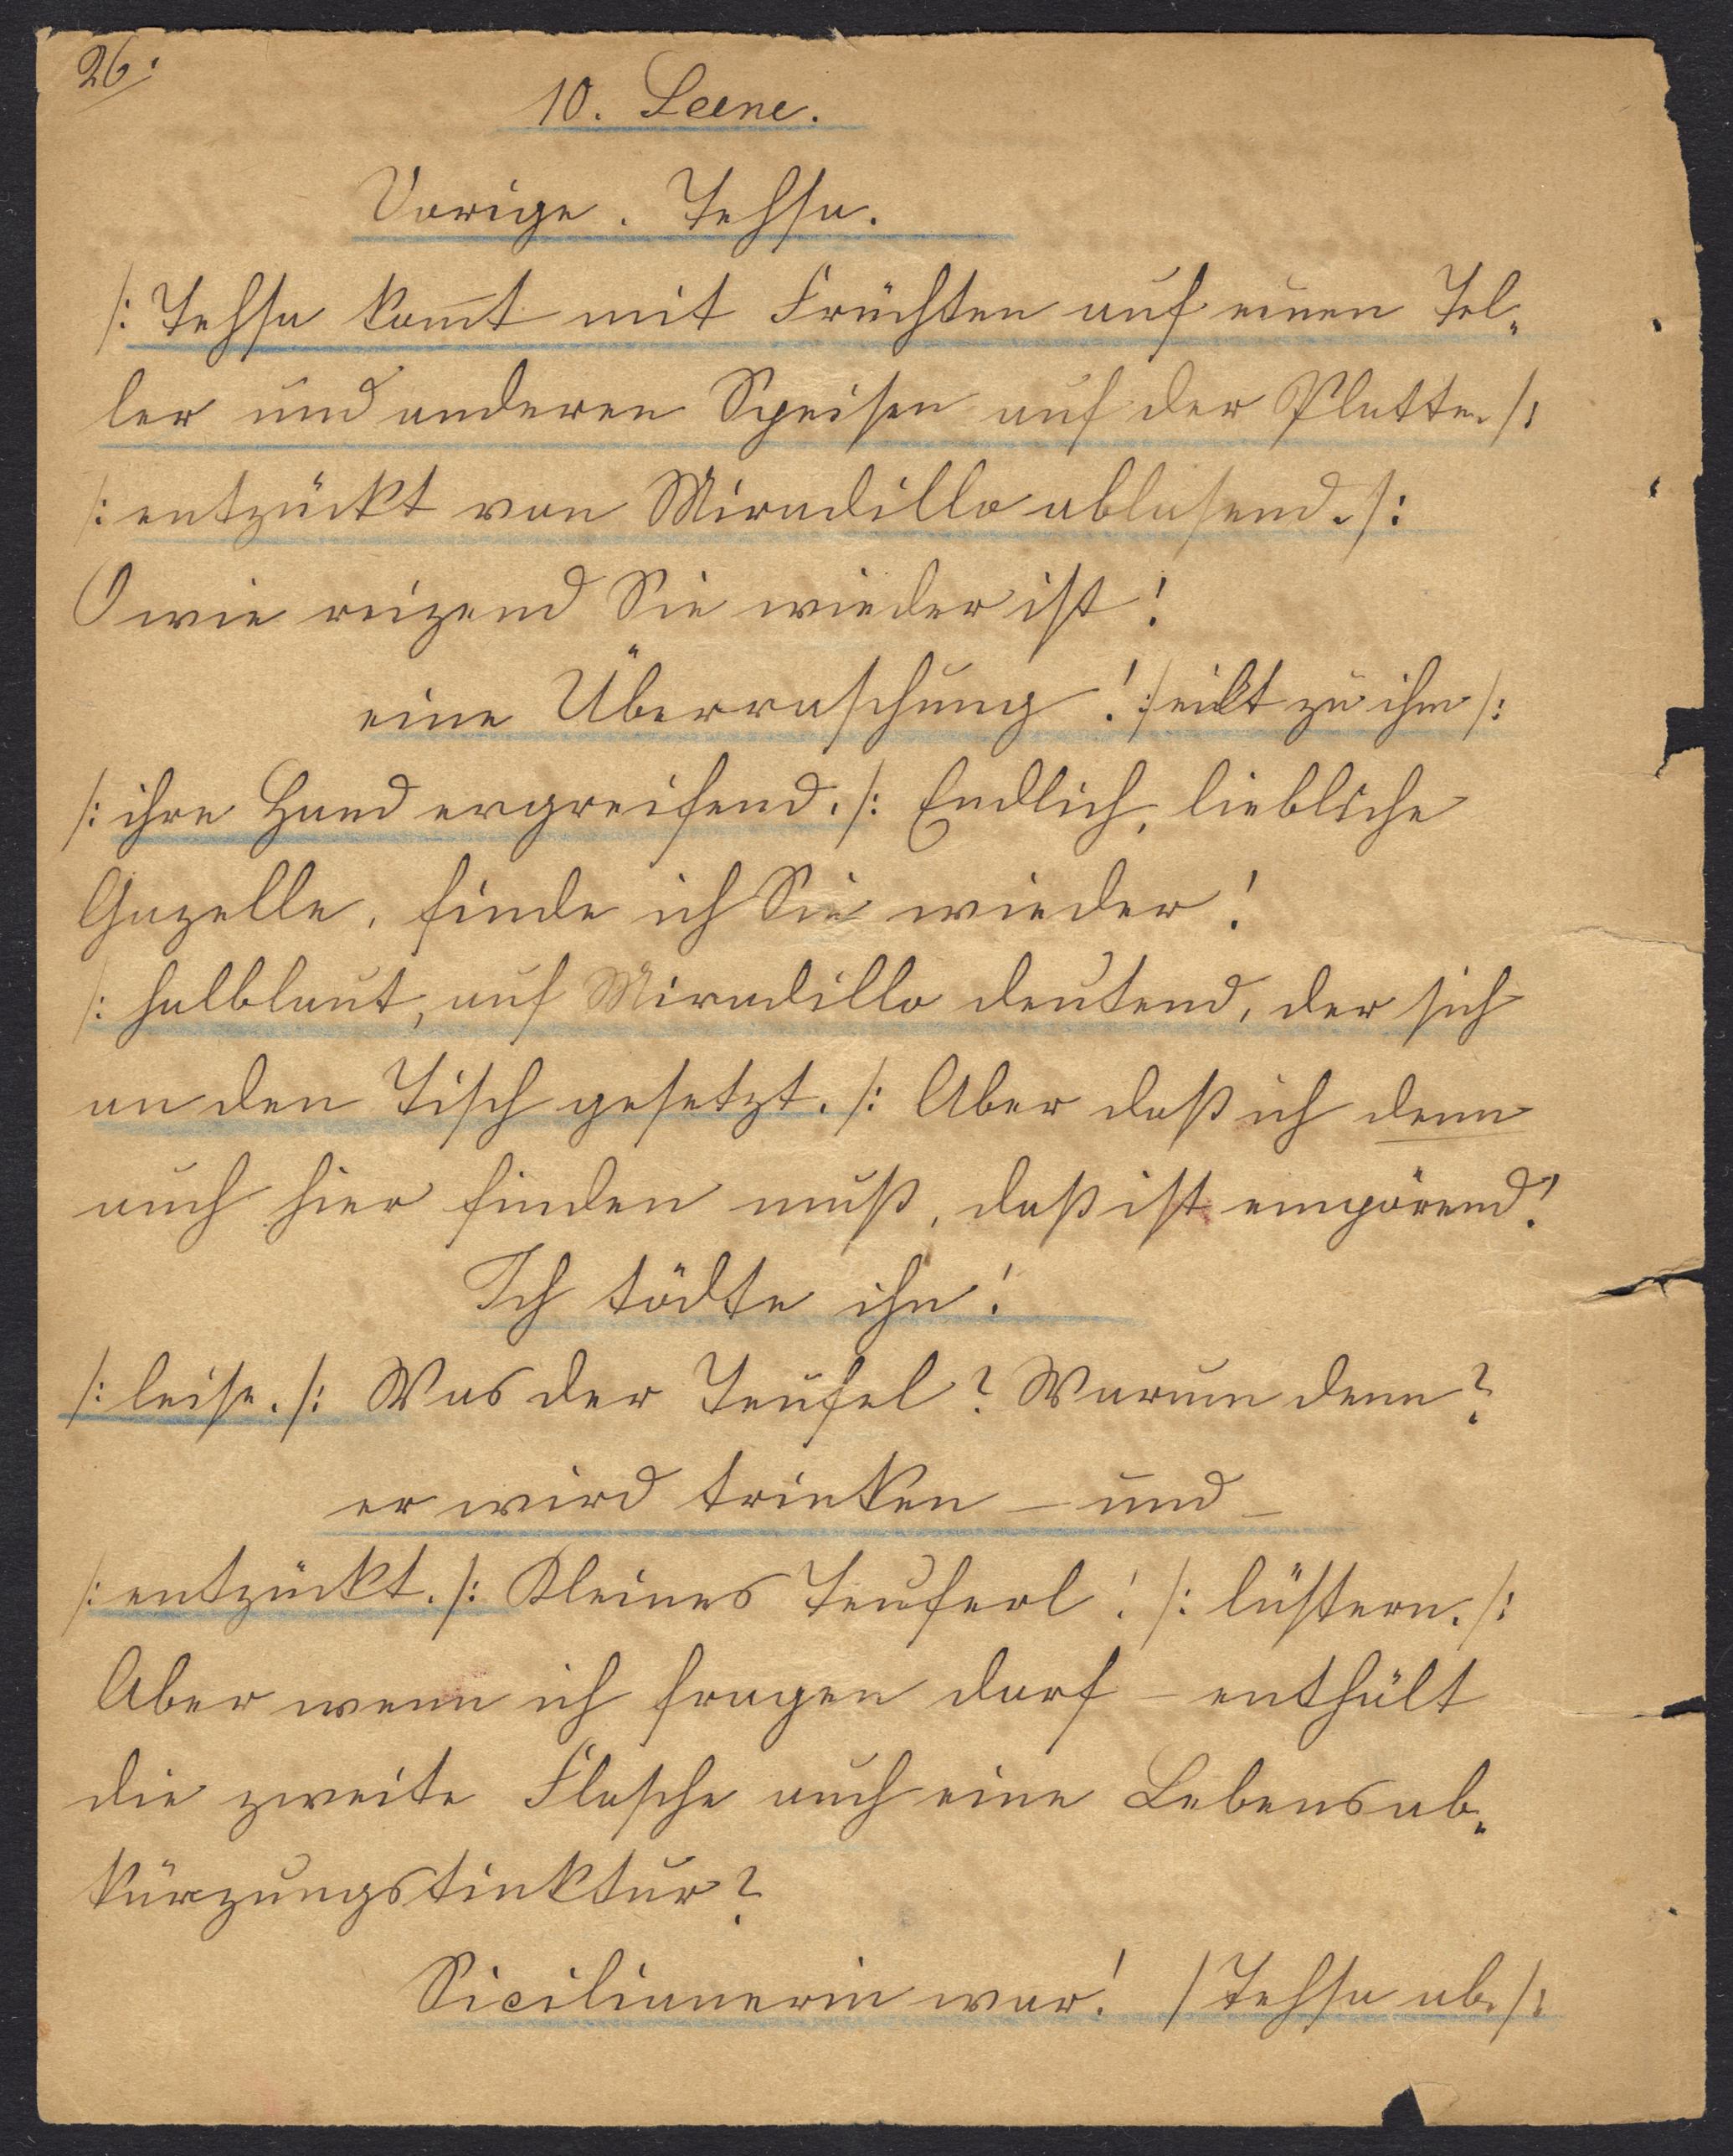 26.
10. Scene.
Vorige. Tessa.
/: Tessa kom̄t mit Früchten auf einen Tel„
ler und anderen Speisen auf der Platte. /:
/: entzückt von Miradillo ablassend. /:
O wie reizend Sie wieder ist!
eine Überraschung! :/ eilt zu ihm /:
/: ihre Hand ergreifend. /: Endlich, liebliche
Gazelle, finde ich Sie wieder!
/: halblaut, auf Miradillo deutend, der sich
an den Tisch gesetzt. /: Aber daß ich denn
auch hier finden muß, daß ist empörend!
Ich tödte ihn!
/: leise. /: Was der Teufel? Warum denn?
er wird trinken – und –
/: entzückt. /: Kleines Teuferl! /: lüstern. /:
Aber wenn ich fragen darf – enthält
die zweite Flasche auch eine Lebensab„
kürzungstinktur?
Sicilianerin war! / Tessa ab. /: